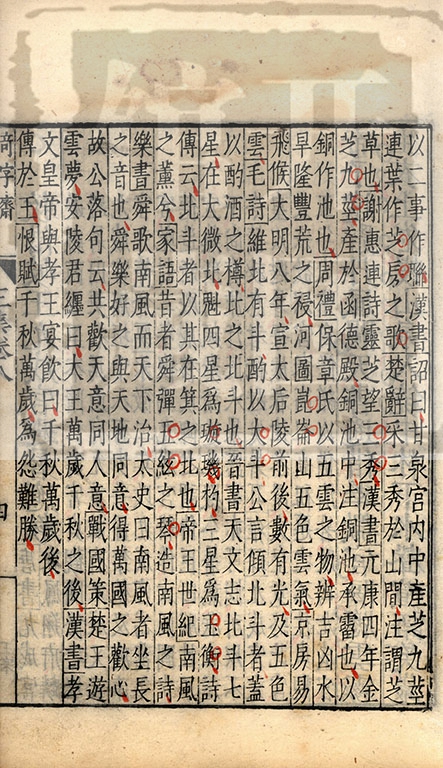 以二事作聯漢書詔曰甘泉宮内中產芝九莖
連葉作芝房之歌楚辭采三秀於山間注謂芝
草也謝惠連詩靈芝望三秀漢書元康四年金
芝九莖產於函德殿銅池中注銅池承霤也以
銅作池也周禮保章氏以五雲之物辨吉凶水
旱隆豐荒之祲河圖崑崙山五色雲氣京房易
飛候大明八年宣太后陵前後數有光及五色
雲毛詩維北有斗酌以大斗公言傾北斗者蓋
以酌酒之樽比之北斗也晉書天文志北斗七
星在大微北魁四星爲璇璣杓三星爲玉衡詩
傳云北斗者以其在箕之北也帝王世紀南風
之薰兮家語昔者舜彈五絃之琴造南風之詩
樂書舜歌南風而天下治太史曰南風者坐長
之音也舜樂好之與天地同意得萬國之歡心
故公落句云共歡天意同人意戰國策楚王遊
雲夢安陵君纏曰大王萬歲千秋之後漢書孝
文皇帝與孝王宴飲曰千秋萬歲後
傳於王恨賦千秋萬歲爲怨難勝
四